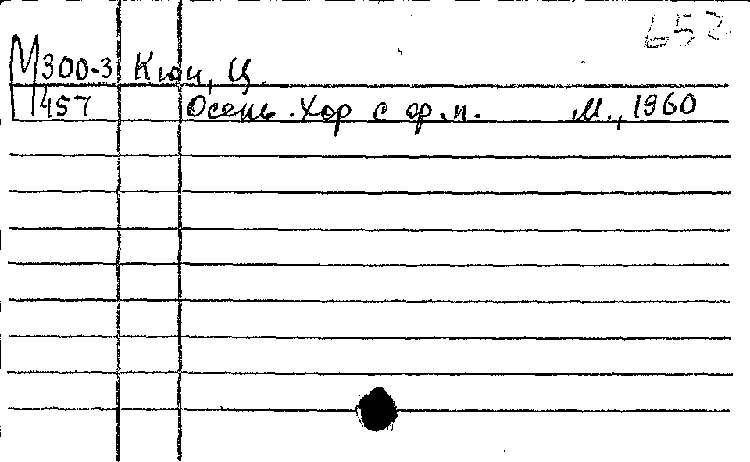 652
М300-3 Кюи, Ц.
1457 Осень. Хор с ф.п. М., 1960